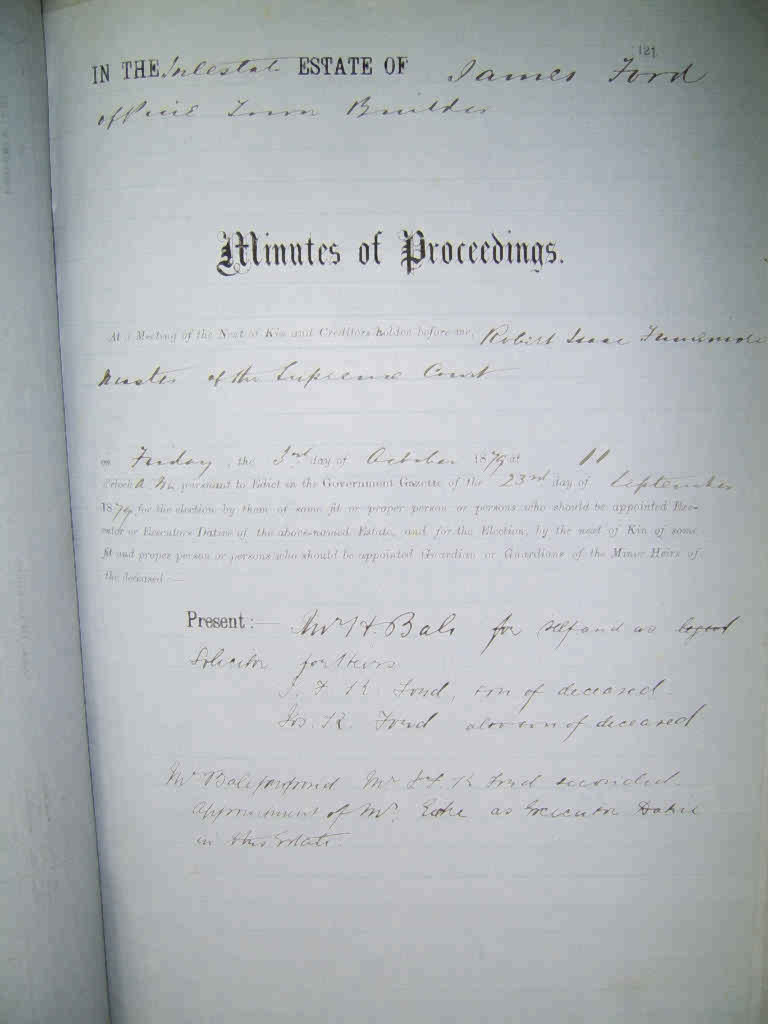 121
IN THE Intestate ESTATE OF James Ford
of Pine Town Builder
Minutes of Proceedings.
At a Meeting of the Next of Kin and Creditors holden before me, Robert Isaac Finnemore
Master of the Supreme Court
on Friday, the 3rd day of October 1879 at 11
o'clock A.M. pursuant to Edict in the Government Gazette of the 23rd day of September
1879 for the election by them of some fit or proper person or persons who should be appointed Exe-
cutor or Executors Dative of the above-named Estate, and for the Election, by the next of Kin of some
fit and proper person or persons who should be appointed Guardian or Guardians of the Minor Heirs of
the deceased:—
Present:— Mr H. Bale for self and as
Solicitor for Heirs
J. F. K. Ford, son of deceased
Jos. K. Ford also son of deceased
Mr Bale proposed Mr K Ford seconded
appointment of Mr. as Executor Dative
in this Estate.